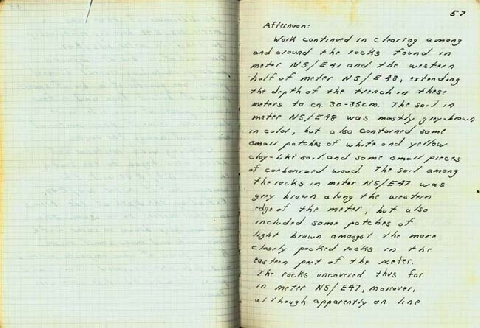 57
Afternoon:
Work continued in clearing among
and around the rocks found in
meter N5/E47 and the western
half of meter N5/E48, extending
the depth of the trench in these
meters to ca. 30-35cm. The soil in
meter N5/E48 was mostly grey-brown
in color, but also contained some
small patches of white and yellow
clay-like soil and some small pieces
of carbonized wood. The soil among
the rocks in meter N5/E47 was
grey brown along the western
edge of the meter, but also
included some patches of
light brown amongst the more
closely packed rocks in the
eastern part of the meter.
The rocks uncovered thus far
in meter N5/E47, moreover,
although apparently on line